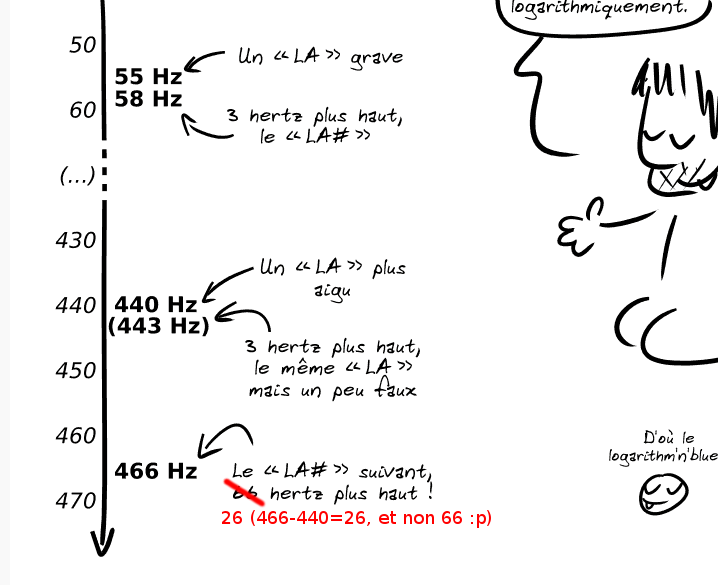 logarithmiquement.
50
Un «LA» grave
55 Hz
58 Hz
60
3 hertz plus haut,
le «LA#»
(...)
430
Un «LA» plus
aigu
440
440 Hz
(443 Hz)
3 hertz plus haut,
le même «LA»
mais un peu faux
450
460
466 Hz
Le «LA#» suivant,
66 hertz plus haut !
470
26 (466-440=26, et non 66 :p)
D'où le
logarithm'n'blue